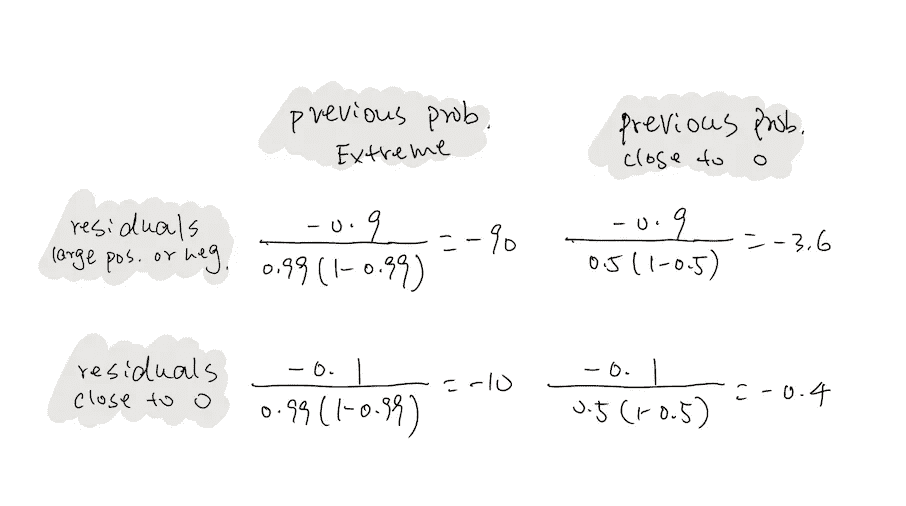 previous prob.
Extreme
previous prob.
close to 0
residuals
large pos. or neg.
-0.9
0.99(1-0.99)
= -90
-0.9
0.5(1-0.5)
= -3.6
residuals
close to 0
-0.1
0.99(1-0.99)
= -10
-0.1
0.5(1-0.5)
= -0.4